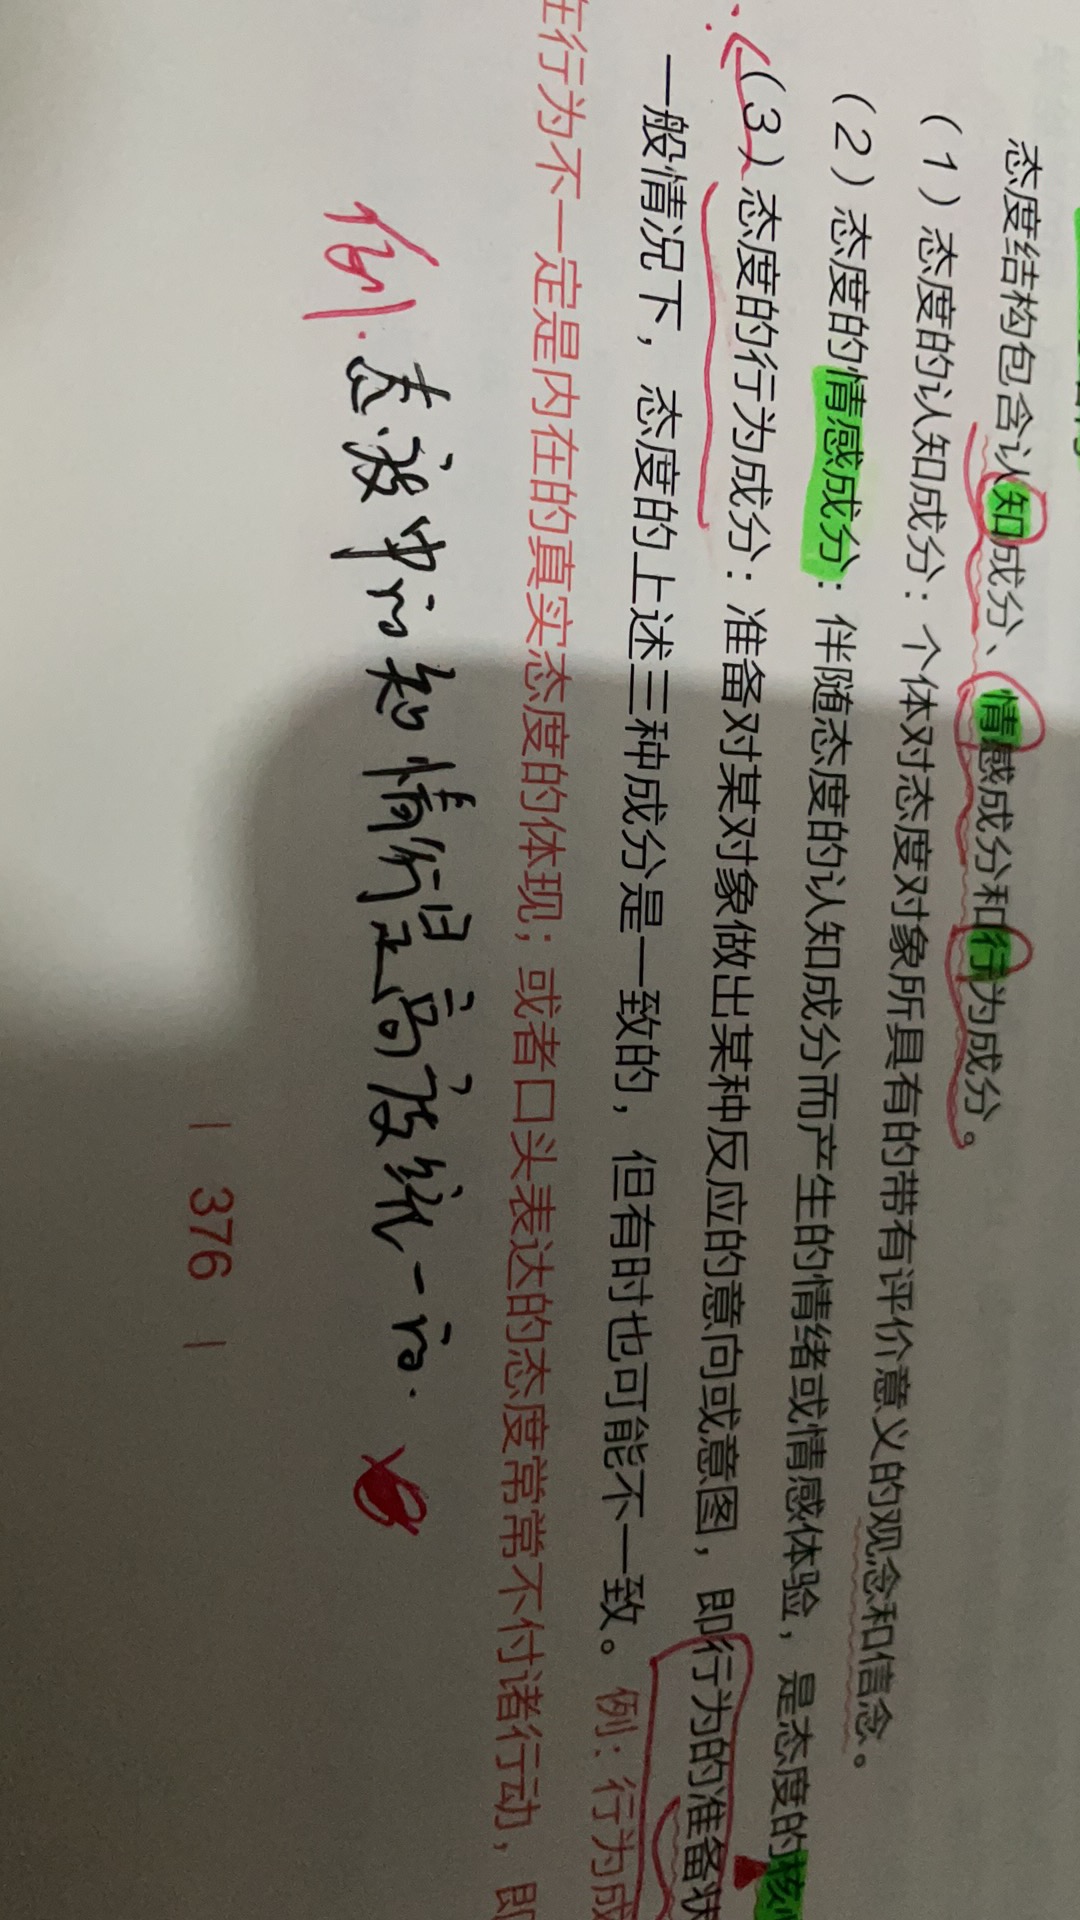 态度结构包含认知成分、情感成分和行为成分。
（1）态度的认知成分：个体对态度对象所具有的带有评价意义的观念和信念。
（2）态度的情感成分：伴随态度的认知成分而产生的情绪或情感体验，是态度的核
（3）态度的行为成分：准备对某对象做出某种反应的意向或意图，即行为的准备状
一般情况下，态度的上述三种成分是一致的，但有时也可能不一致。例：行为成
在行为不一定是内在的真实态度的体现；或者口头表达的态度常常不付诸行动，即
例．态度中的知情行是高度统一的．
| 376 |